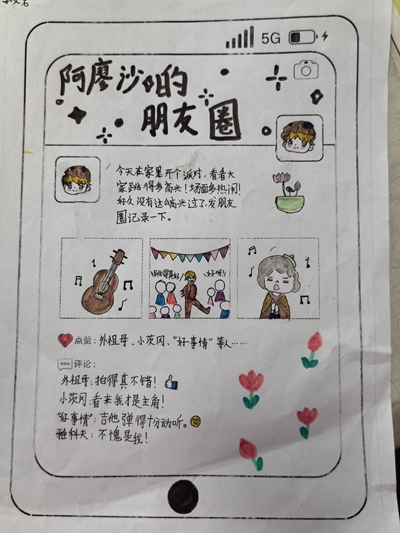 5G
阿廖沙的
朋友圈
今天在家里开个派对,看看大
家跳得多高兴!场面多热闹!
好久没有这么高兴过了,发朋友
圈记录一下。
点赞:外祖母、小茨冈、“好事情”等人……
评论:
外祖母:拍得真不错!
小茨冈:看来我才是主角!
“好事情”:吉他弹得十分动听。
雅科夫:不愧是我!